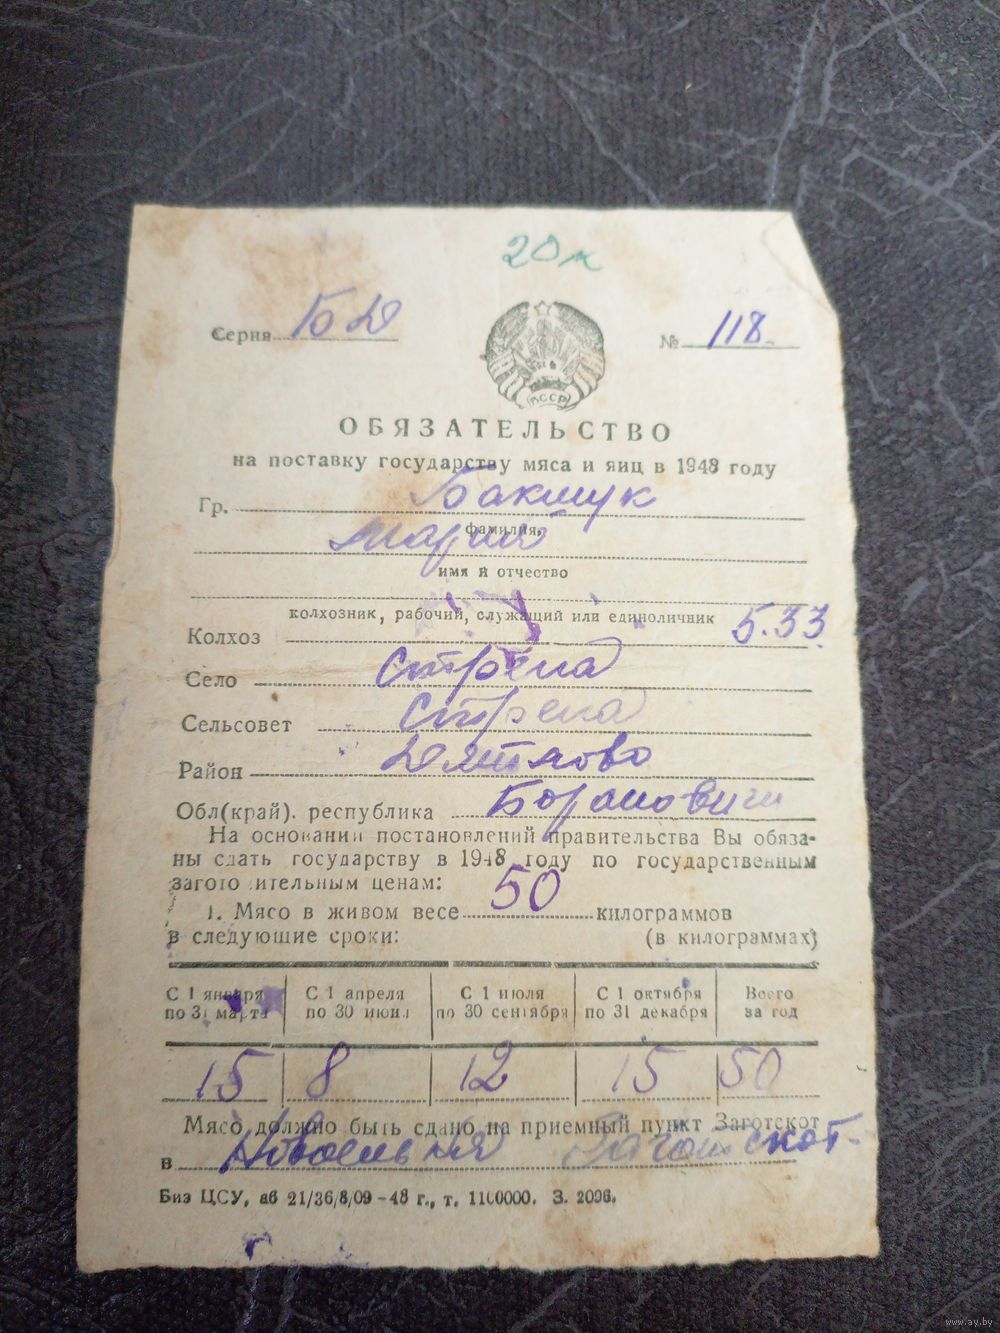 20 к
Серия БД № 118.
БССР
ОБЯЗАТЕЛЬСТВО
на поставку государству мяса и яиц в 1948 году
Гр. Бакшук
фамилия,
Мария
имя и отчество
колхозник, рабочий, служащий или единоличник
Колхоз 5.33
Село Стрела
Сельсовет Стрела
Район Дятлово
Обл(край). республика Барановичи
На основании постановлений правительства Вы обяза-
ны сдать государству в 1948 году по государственным
заготовительным ценам:
1. Мясо в живом весе 50 килограммов
в следующие сроки: (в килограммах)
С 1 января по 31 марта С 1 апреля по 30 июня С 1 июля по 30 сентября С 1 октября по 31 декабря Всего за год
15 8 12 15 50
Мясо должно быть сдано на приемный пункт Заготскот
в Новоельня Заготскот-
Биз ЦСУ, аб 21/36/8/09-48 г., т. 1100000. З. 2096.
www.ay.by